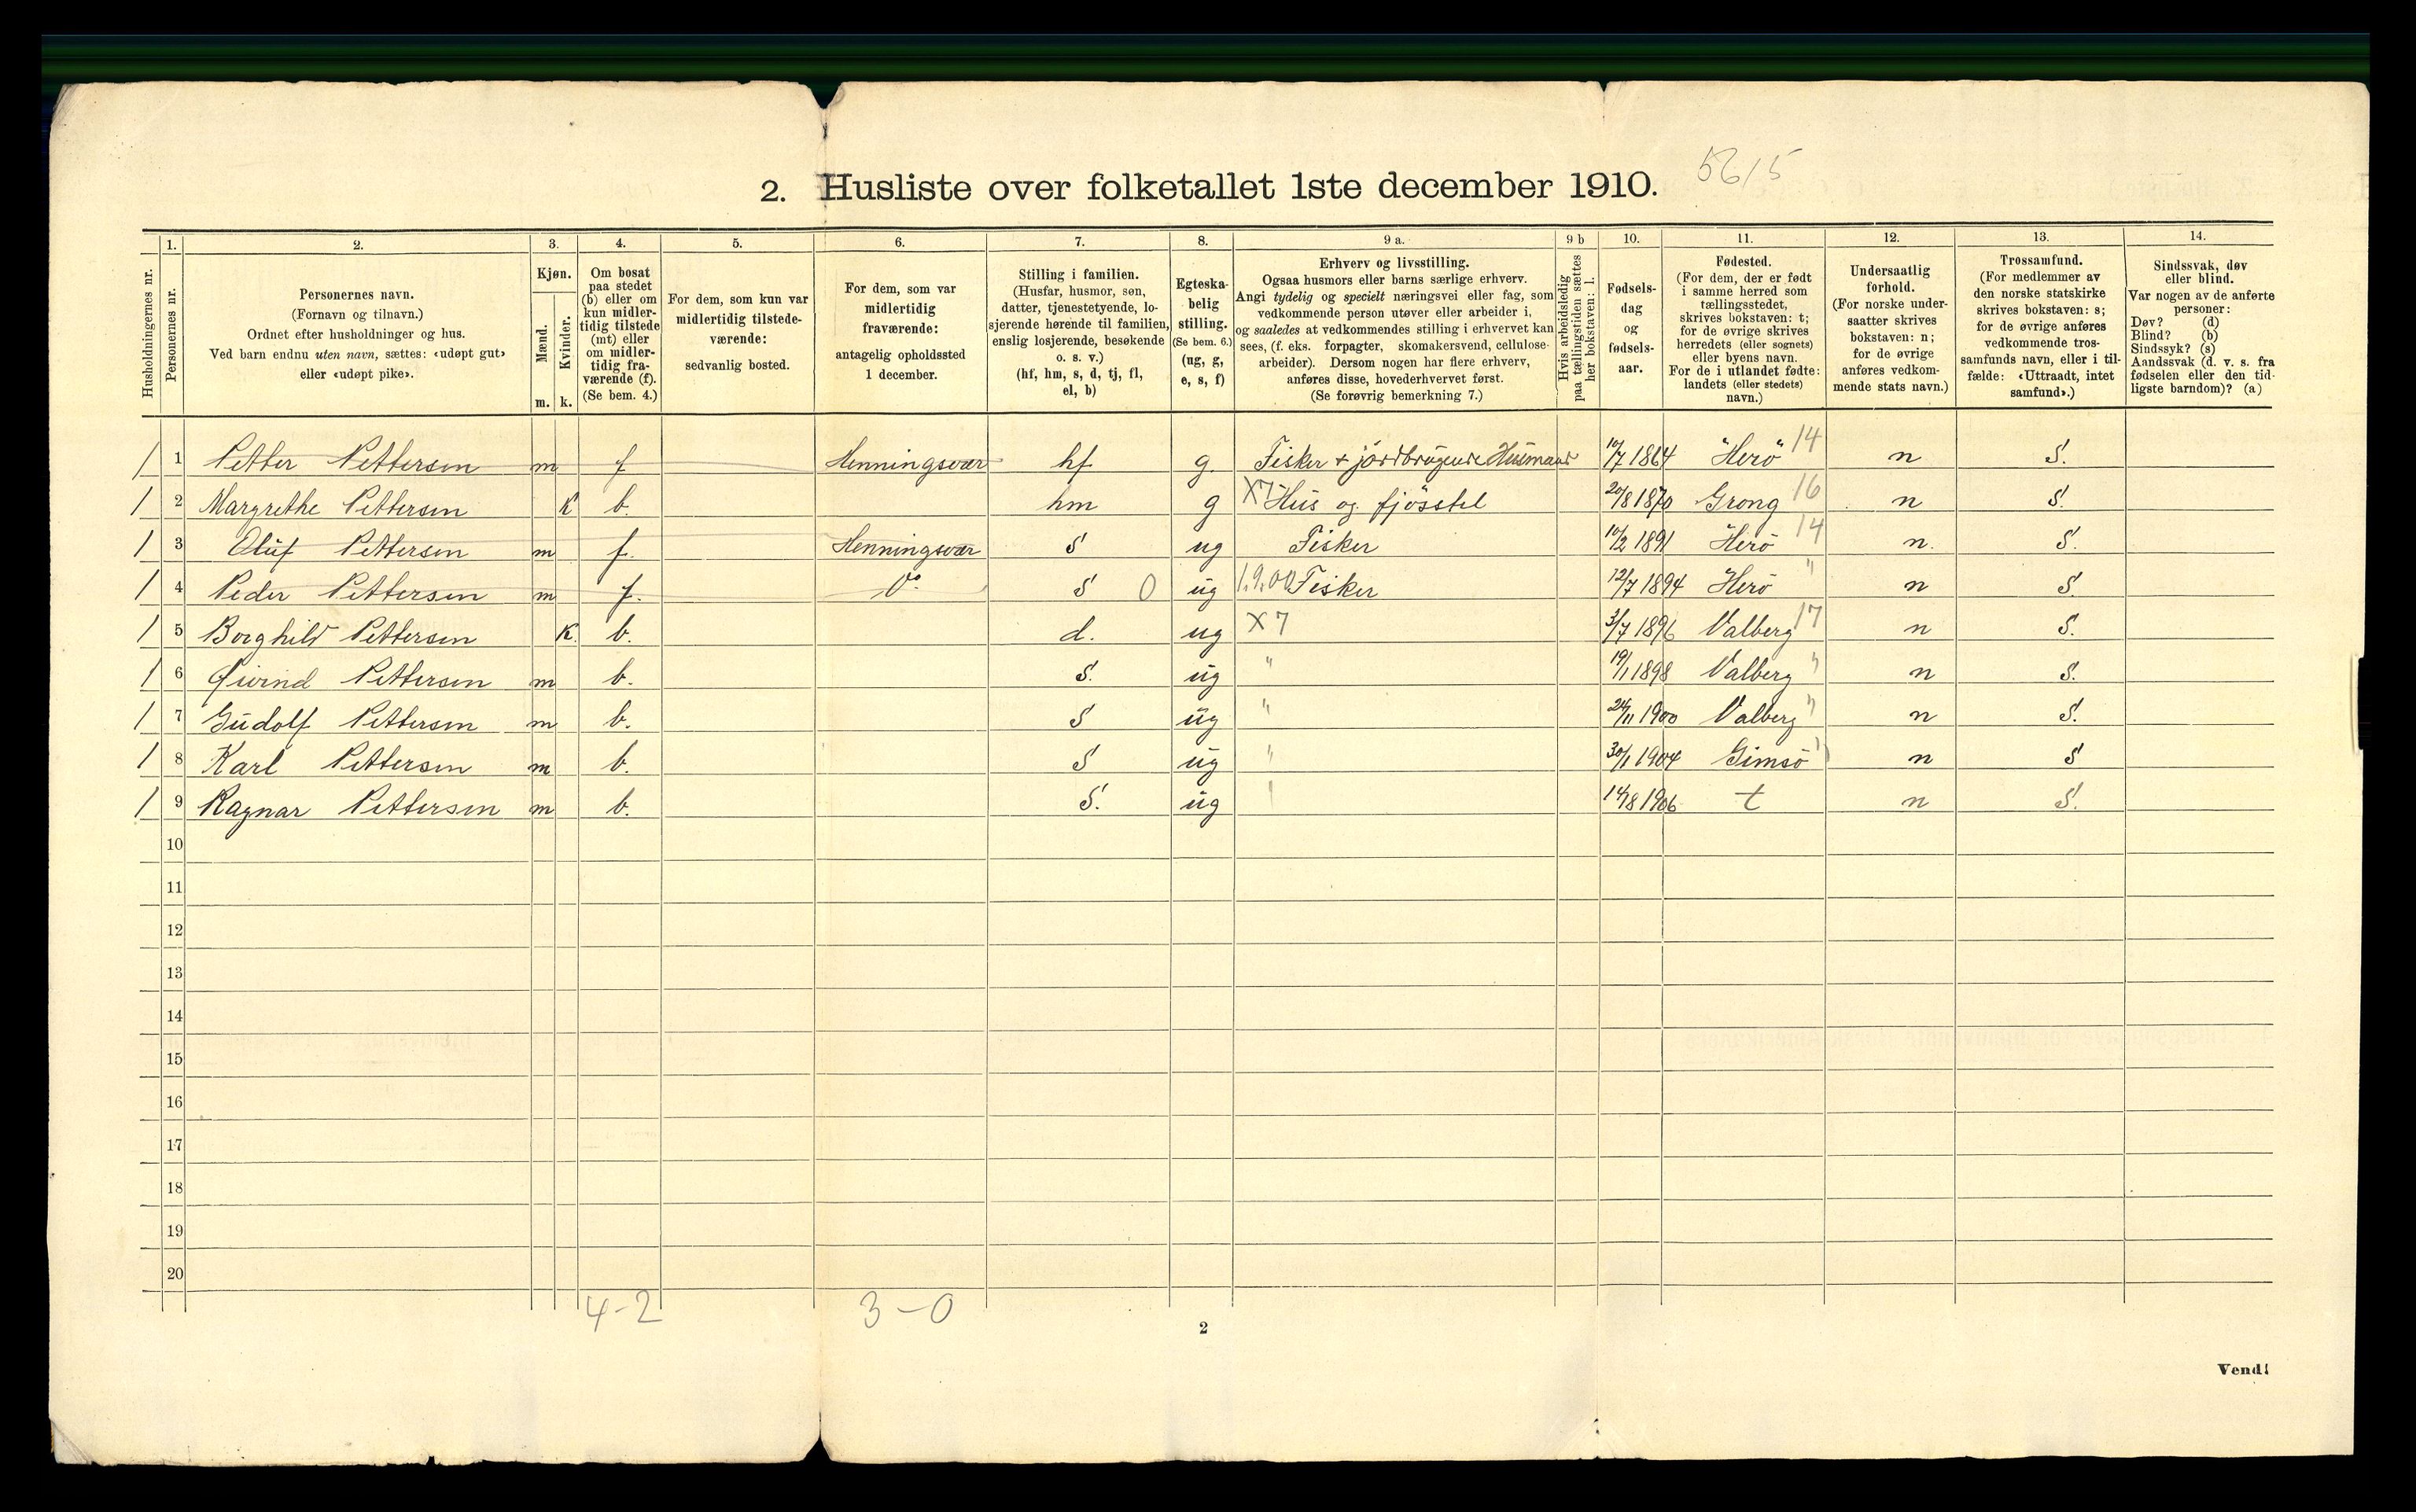 56/5
2. Husliste over folketallet 1ste december 1910.
Husholdningernes nr. | 1. Personernes nr. | 2. Personernes navn. (Fornavn og tilnavn.) Ordnet efter husholdninger og hus. Ved barn endnu uten navn, sættes: «udøpt gut» eller «udøpt pike». | 3. Kjøn. Mænd. m. Kvinder. k. | 4. Om bosat paa stedet (b) eller om kun midlertidig tilstede (mt) eller om midlertidig fraværende (f). (Se bem. 4.) | 5. For dem, som kun var midlertidig tilstedeværende: sedvanlig bosted. | 6. For dem, som var midlertidig fraværende: antagelig opholdssted 1 december. | 7. Stilling i familien. (Husfar, husmor, søn, datter, tjenestetyende, losjerende hørende til familien, enslig losjerende, besøkende o. s. v.) (hf, hm, s, d, tj, fl, el, b) | 8. Egteskabelig stilling. (Se bem. 6.) (ug, g, e, s, f) | 9 a. Erhverv og livsstilling. Ogsaa husmors eller barns særlige erhverv. Angi tydelig og specielt næringsvei eller fag, som vedkommende person utøver eller arbeider i, og saaledes at vedkommendes stilling i erhvervet kan sees, (f. eks. forpagter, skomakersvend, cellulosearbeider). Dersom nogen har flere erhverv, anføres disse, hovederhvervet først. (Se forøvrig bemerkning 7.) | 9 b Hvis arbeidsledig paa tællingstiden sættes her bokstaven: l. | 10. Fødselsdag og fødselsaar. | 11. Fødested. (For dem, der er født i samme herred som tællingsstedet, skrives bokstaven: t; for de øvrige skrives herredets (eller sognets) eller byens navn. For de i utlandet fødte: landets (eller stedets) navn.) | 12. Undersaatlig forhold. (For norske undersaatter skrives bokstaven: n; for de øvrige anføres vedkommende stats navn.) | 13. Trossamfund. (For medlemmer av den norske statskirke skrives bokstaven: s; for de øvrige anføres vedkommende trossamfunds navn, eller i tilfælde: «Uttraadt, intet samfund».) | 14. Sindssvak, døv eller blind. Var nogen av de anførte personer: Døv? (d) Blind? (b) Sindssyk? (s) Aandssvak (d. v. s. fra fødselen eller den tidligste barndom)? (a)
/ 1 Petter Pettersen m f Henningsvær hf g. Fisker + jordbrugende Husmand 10/7 1864 Herö 14 n S.
/ 2 Margrethe Pettersen K b. hm g X7 Hus og fjösstel 20/8 1870 Grong 16 n S.
/ 3 Oluf Pettersen m f. Henningsvær S ug Fisker 10/2 1891 Herö 14 n. S.
/ 4 Peder Pettersen m f. Do S 0 ug 1.9.00 Fisker 12/7 1894 Herö " n S.
/ 5 Borghild Pettersen K. b. d. ug X7 3/7 1896 Valberg 17 n S.
/ 6 Øivind Pettersen m b. S. ug " 19/1 1898 Valberg " n S.
/ 7 Gudolf Pettersen m b. S ug " 24/11 1900 Valberg " n S.
/ 8 Karl Pettersen m b. S ug " 30/1 1904 Gimsö " n S
/ 9 Ragnar Pettersen m b. S. ug " 14/8 1906 t n S.
10
11
12
13
14
15
16
17
18
19
20
4-2 3-0
2
Vend!